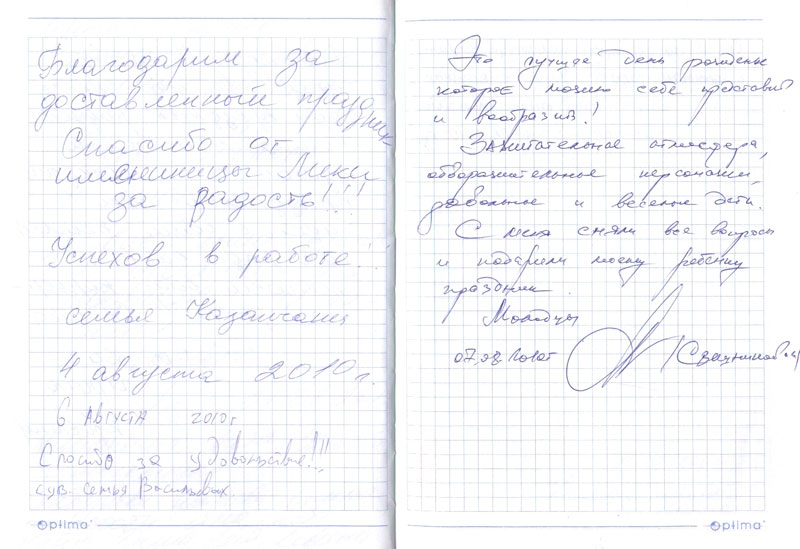 Благодарим за
доставленный праздник
Спасибо от
именинницы Лики
за радость!!!
Успехов в работе!
семья Казанчанц
4 августа 2010 г.
6 Августа 2010 г
Спасибо за удовольствие!!!
сув. семья Васильевых.
optima
Это лучшее день рожденье
которое можно себе представить
и вообразить!
Зажигательное атмосфера,
обворожительное персонажи,
довольные и веселые дети.
С меня сняли все вопросы
и подарили моему ребёнку
праздник.
Молодцы
07.08.2010г
optima